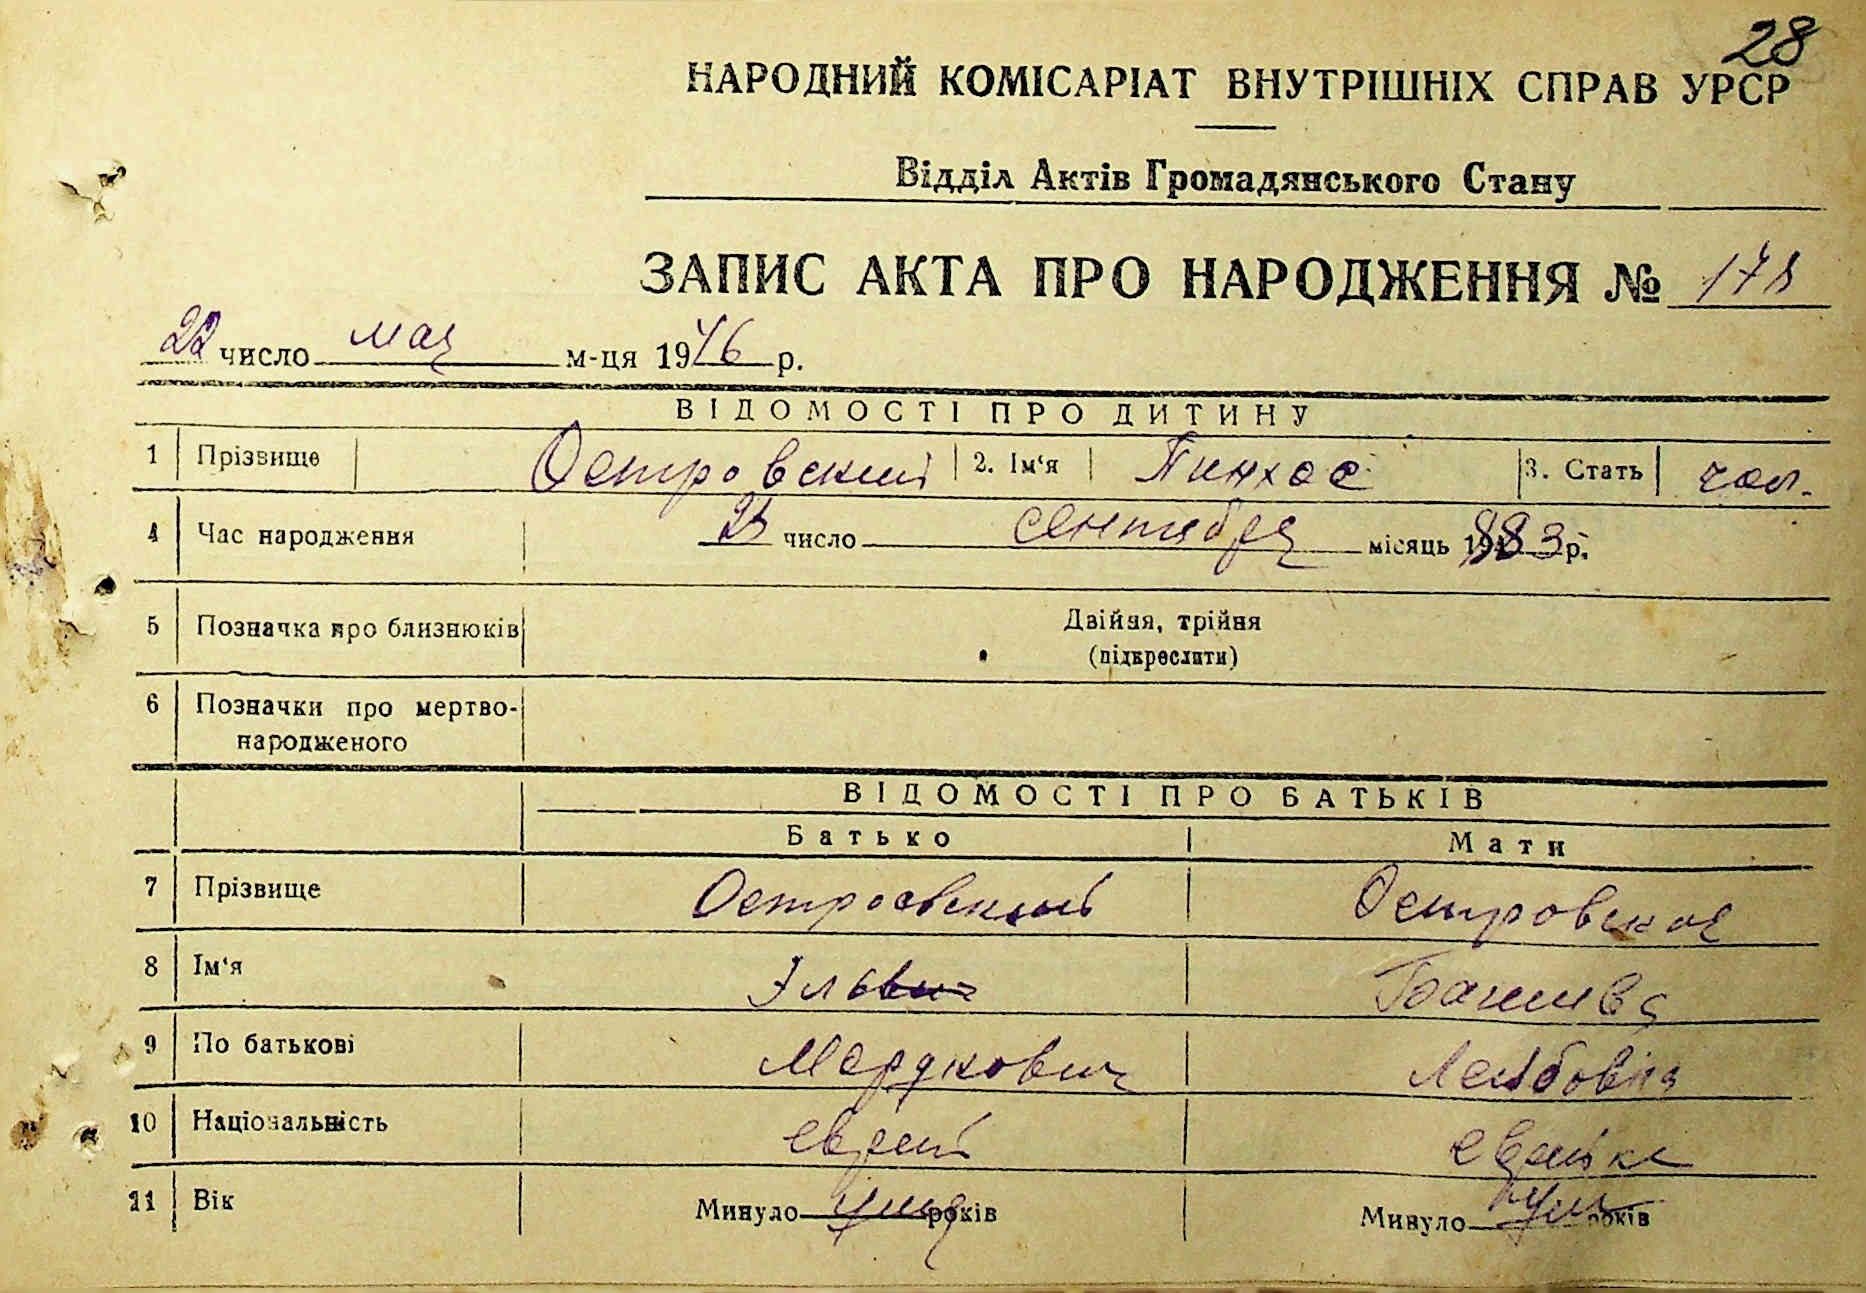 28
НАРОДНИЙ КОМІСАРІАТ ВНУТРІШНІХ СПРАВ УРСР
Відділ Актів Громадянського Стану
ЗАПИС АКТА ПРО НАРОДЖЕННЯ № 178
22 число мая м-ця 1946 р.
ВІДОМОСТІ ПРО ДИТИНУ
1 Прізвище Островский 2. Ім'я Пинхос 3. Стать чол.
4 Час народження 23 число сентября місяць 1883 р.
5 Позначка про близнюків Двійня, трійня
(підкреслити)
6 Позначки про мертво-
народженого
ВІДОМОСТІ ПРО БАТЬКІВ
Батько Мати
7 Прізвище Островский Островская
8 Ім'я
9 По батькові Мордкович Лейбовна
10 Національність еврей еврейка
11 Вік Минуло років Минуло років